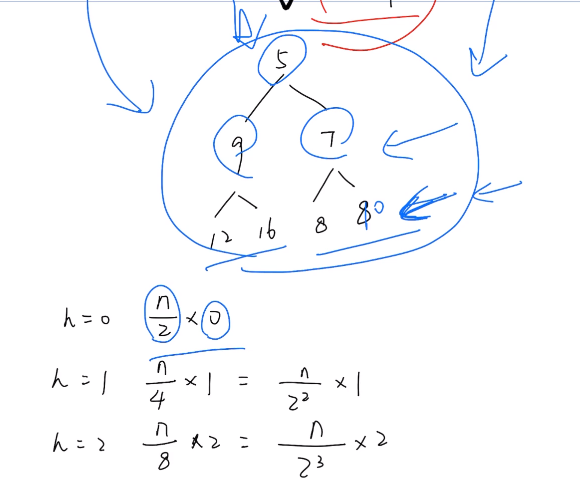 5
9 7
12 16 8
h = 0 n/2 × 0
h = 1 n/4 × 1 = n/2² × 1
h = 2 n/8 × 2 = n/2³ × 2